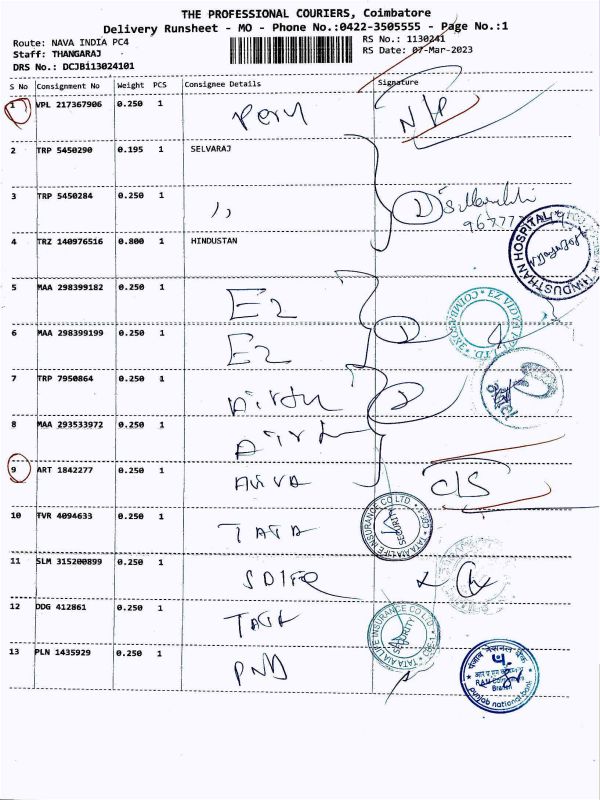 THE PROFESSIONAL COURIERS, Coimbatore
Delivery Runsheet - MO - Phone No.:0422-3505555 - Page No.:1
Route: NAVA INDIA PC4 RS No.: 1130241
Staff: THANGARAJ RS Date: 07-Mar-2023
DRS No.: DCJB113024101
S No Consignment No Weight PCS Consignee Details Signature
1 VPL 217367906 0.250 1
2 TRP 5450290 0.195 1 SELVARAJ
3 TRP 5450284 0.250 1 ,, 2
4 TRZ 140976516 0.800 1 HINDUSTAN
HINDUSTHAN HOSPITAL
5 MAA 298399182 0.250 1 E2
6 MAA 298399199 0.250 1 E2 2
7 TRP 7950864 0.250 1 Airtel
8 MAA 293533972 0.250 1 Airtel 2
9 ART 1842277 0.250 1 AVIVA
10 TVR 4094633 0.250 1 TATA
TATA AIA LIFE INSURANCE CO LTD
SECURITY
11 SLM 315200899 0.250 1
12 DDG 412861 0.250 1 TATA
TATA AIA LIFE INSURANCE CO LTD
SECURITY
13 PLN 1435929 0.250 1 PNB
पंजाब नैशनल बैंक
punjab national bank